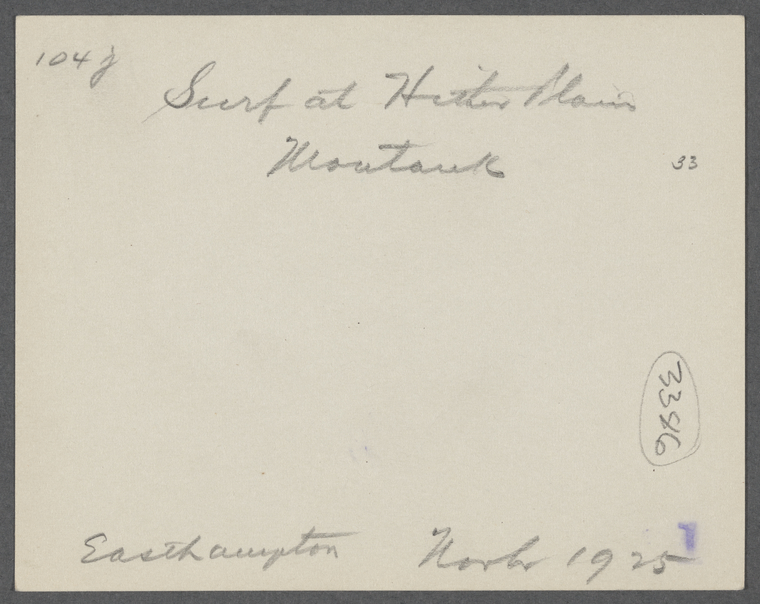 104j
Surf at Hither Plain
Montauk
33
3346
Easthampton Novbr 1925